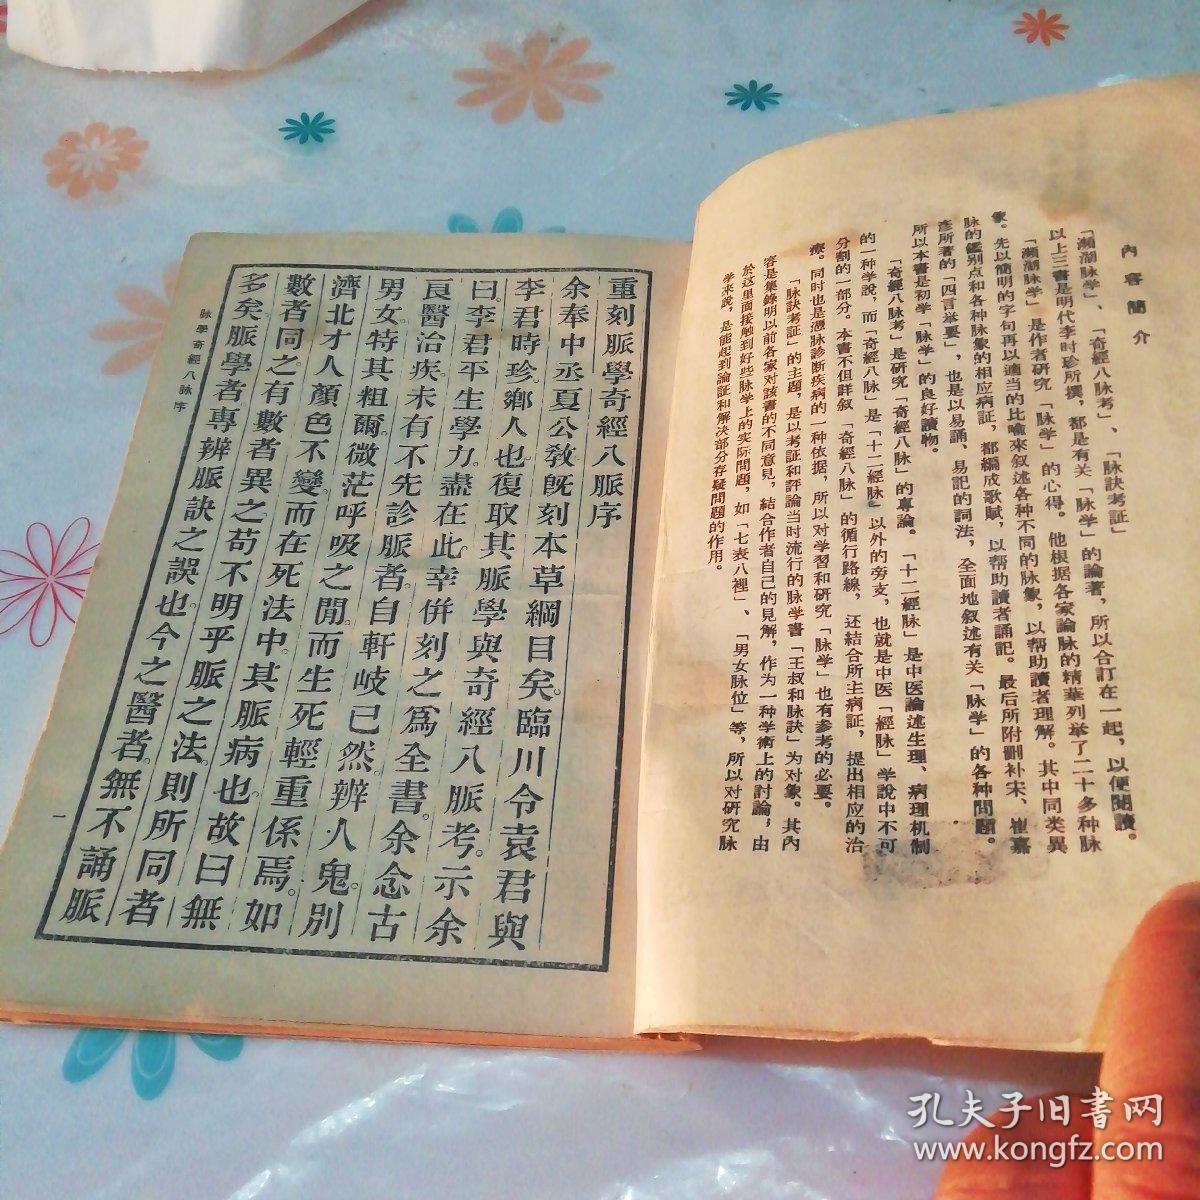 內容簡介
「瀕湖脉学」、「奇經八脉考」、「脉訣考証」
以上三書是明代李时珍所撰，都是有关「脉学」的論著，所以合訂在一起，以便閱讀。
「瀕湖脉学」是作者研究「脉学」的心得。他根据各家論脉的精華列举了二十多种脉
象。先以簡明的字句再以適当的比喻来叙述各种不同的脉象，以帮助讀者理解。其中同类異
脉的鑑别点和各种脉象的相应病証，都編成歌賦，以帮助讀者誦記。最后所附删补宋、崔嘉
彦所著的「四言举要」，也是以易誦，易記的詞法，全面地叙述有关「脉学」的各种問題。
所以本書是初学「脉学」的良好讀物。
「奇經八脉考」是研究「奇經八脉」的專論。「十二經脉」是中医論述生理、病理机制
的一种学說，而「奇經八脉」是「十二經脉」以外的旁支，也就是中医「經脉」学說中不可
分割的一部分。本書不但詳叙「奇經八脉」的循行路線，还結合所主病証，提出相应的治
療。同时也是憑脉診断疾病的一种依据，所以对学習和研究「脉学」也有参考的必要。
「脉訣考証」的主題，是以考証和評論当时流行的脉学書「王叔和脉訣」为对象。其內
容是集錄明以前各家对該書的不同意見，結合作者自己的見解，作为一种学術上的討論，由
於这里面接触到好些脉学上的实际問題，如「七表八裡」、「男女脉位」等，所以对研究脉
学来說，是能起到論証和解决部分存疑問題的作用。
重刻脈學奇經八脈序
余奉中丞夏公敎旣刻本草綱目矣。臨川令袁君與
李君時珍。鄉人也復取其脈學與奇經八脈考。示余
曰。李君平生學力。盡在此。幸併刻之爲全書。余念古
良醫治疾。未有不先診脈者。自軒岐已然。辨人鬼。別
男女。特其粗爾。微茫呼吸之間。而生死輕重係焉。如
濟北才人顏色不變。而在死法中。其脈病也。故曰無
數者同之。有數者異之。苟不明乎脈之法。則所同者
多矣。脈學者專辨脈訣之誤也。今之醫者。無不誦脈
脉學奇經八脉 序
一
孔夫子旧书网
www.kongfz.com